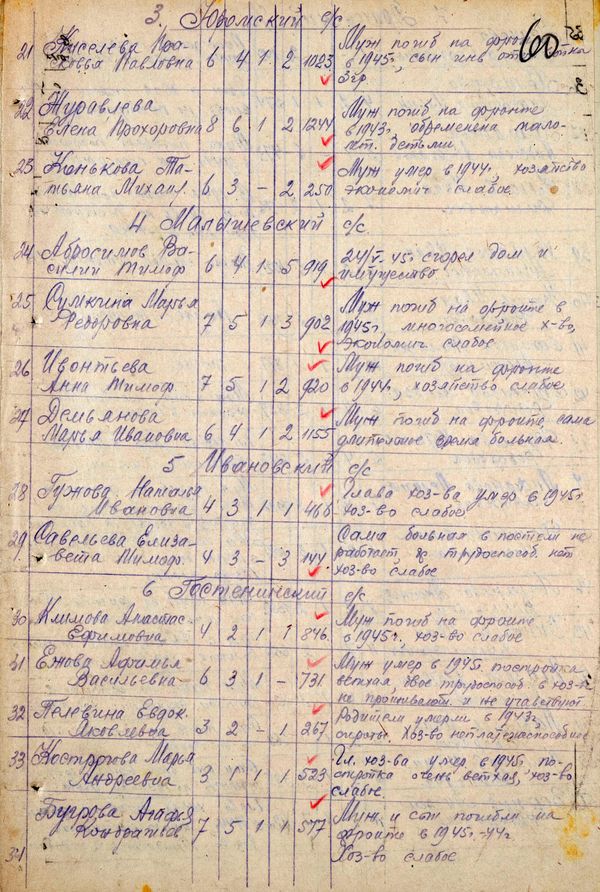 3. Юромский с/с
60
21 Киселева Пра-
ковья Павловна 6 4 1 2 1023
Муж погиб на фрон
в 1945г, сын инв от
3гр.
22 Журавлева
Елена Прохоровна 8 6 1 2 1244
Муж погиб на фронте
в 1943г обременена мало-
лет. детьми
23 Конькова Та-
тьяна Михаил. 6 3 - 2 250
Муж умер в 1944г, хозяйство
экономич слабое
4 Малышевский с/с.
24 Абросимов Ва-
силий Тимоф. 6 4 1 5 919
24/V-45г сгорел дом и
имущество
25 Сумкина Марья
Федоровна 7 5 1 3 902
Муж погиб на фронте в
1945г, многосемейное х-во,
экономич. слабое
26 Леонтьева
Анна Тимоф 7 5 1 2 920
Муж погиб на фронте
в 1944г, хозяйство слабое
27 Демьянова
Марья Ивановна 6 4 1 2 1155
Муж погиб на фронте, сама
длительное время больная.
5 Ивановский с/с
28 Гужова Наталья
Ивановна 4 3 1 1 466
Глава хоз-ва умер в 1945г
хоз-во слабое
29 Савельева Елиза-
вета Тимоф. 4 3 - 3 144
Сама больная в постели не
работает трудоспособ. нет
хоз-во слабое
6 Гостенинский с/с
30 Климова Анастас.
Ефимовна 4 2 1 1 846
Муж погиб на фронте
в 1945г., хоз-во слабое
31 Ежова Афимья
Васильевна 6 3 1 - 731
Муж умер в 1945г постройка
ветхая, двое трудоспособ. в хоз-ве
не проживают и не учавствуют
32 Пелевина Евдок.
Яковлевна 3 2 - 1 267
Родители умерли в 1943г,
сироты. Хоз-во неплатежаспособное
33 Марья
Андреевна 3 1 1 1 523
Гл. хоз-ва умер в 1945г. по-
стройка очень ветхая, хоз-во
слабое.
34 Бугрова Агафья
Кондратьев 7 5 1 1 577
Муж и сын погибли на
фронте в 1945г.-44г
Хоз-во слабое